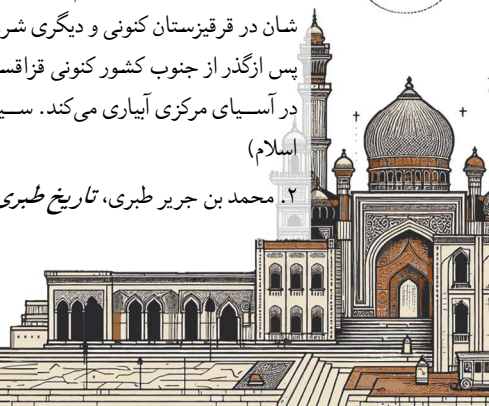 شان در قرقیزستان کنونی و دیگری شر
پس ازگذر از جنوب کشور کنونی قزاقس
در آسیای مرکزی آبیاری می‌کند. سی
اسلام)
۲. محمد بن جریر طبری، تاریخ طبری